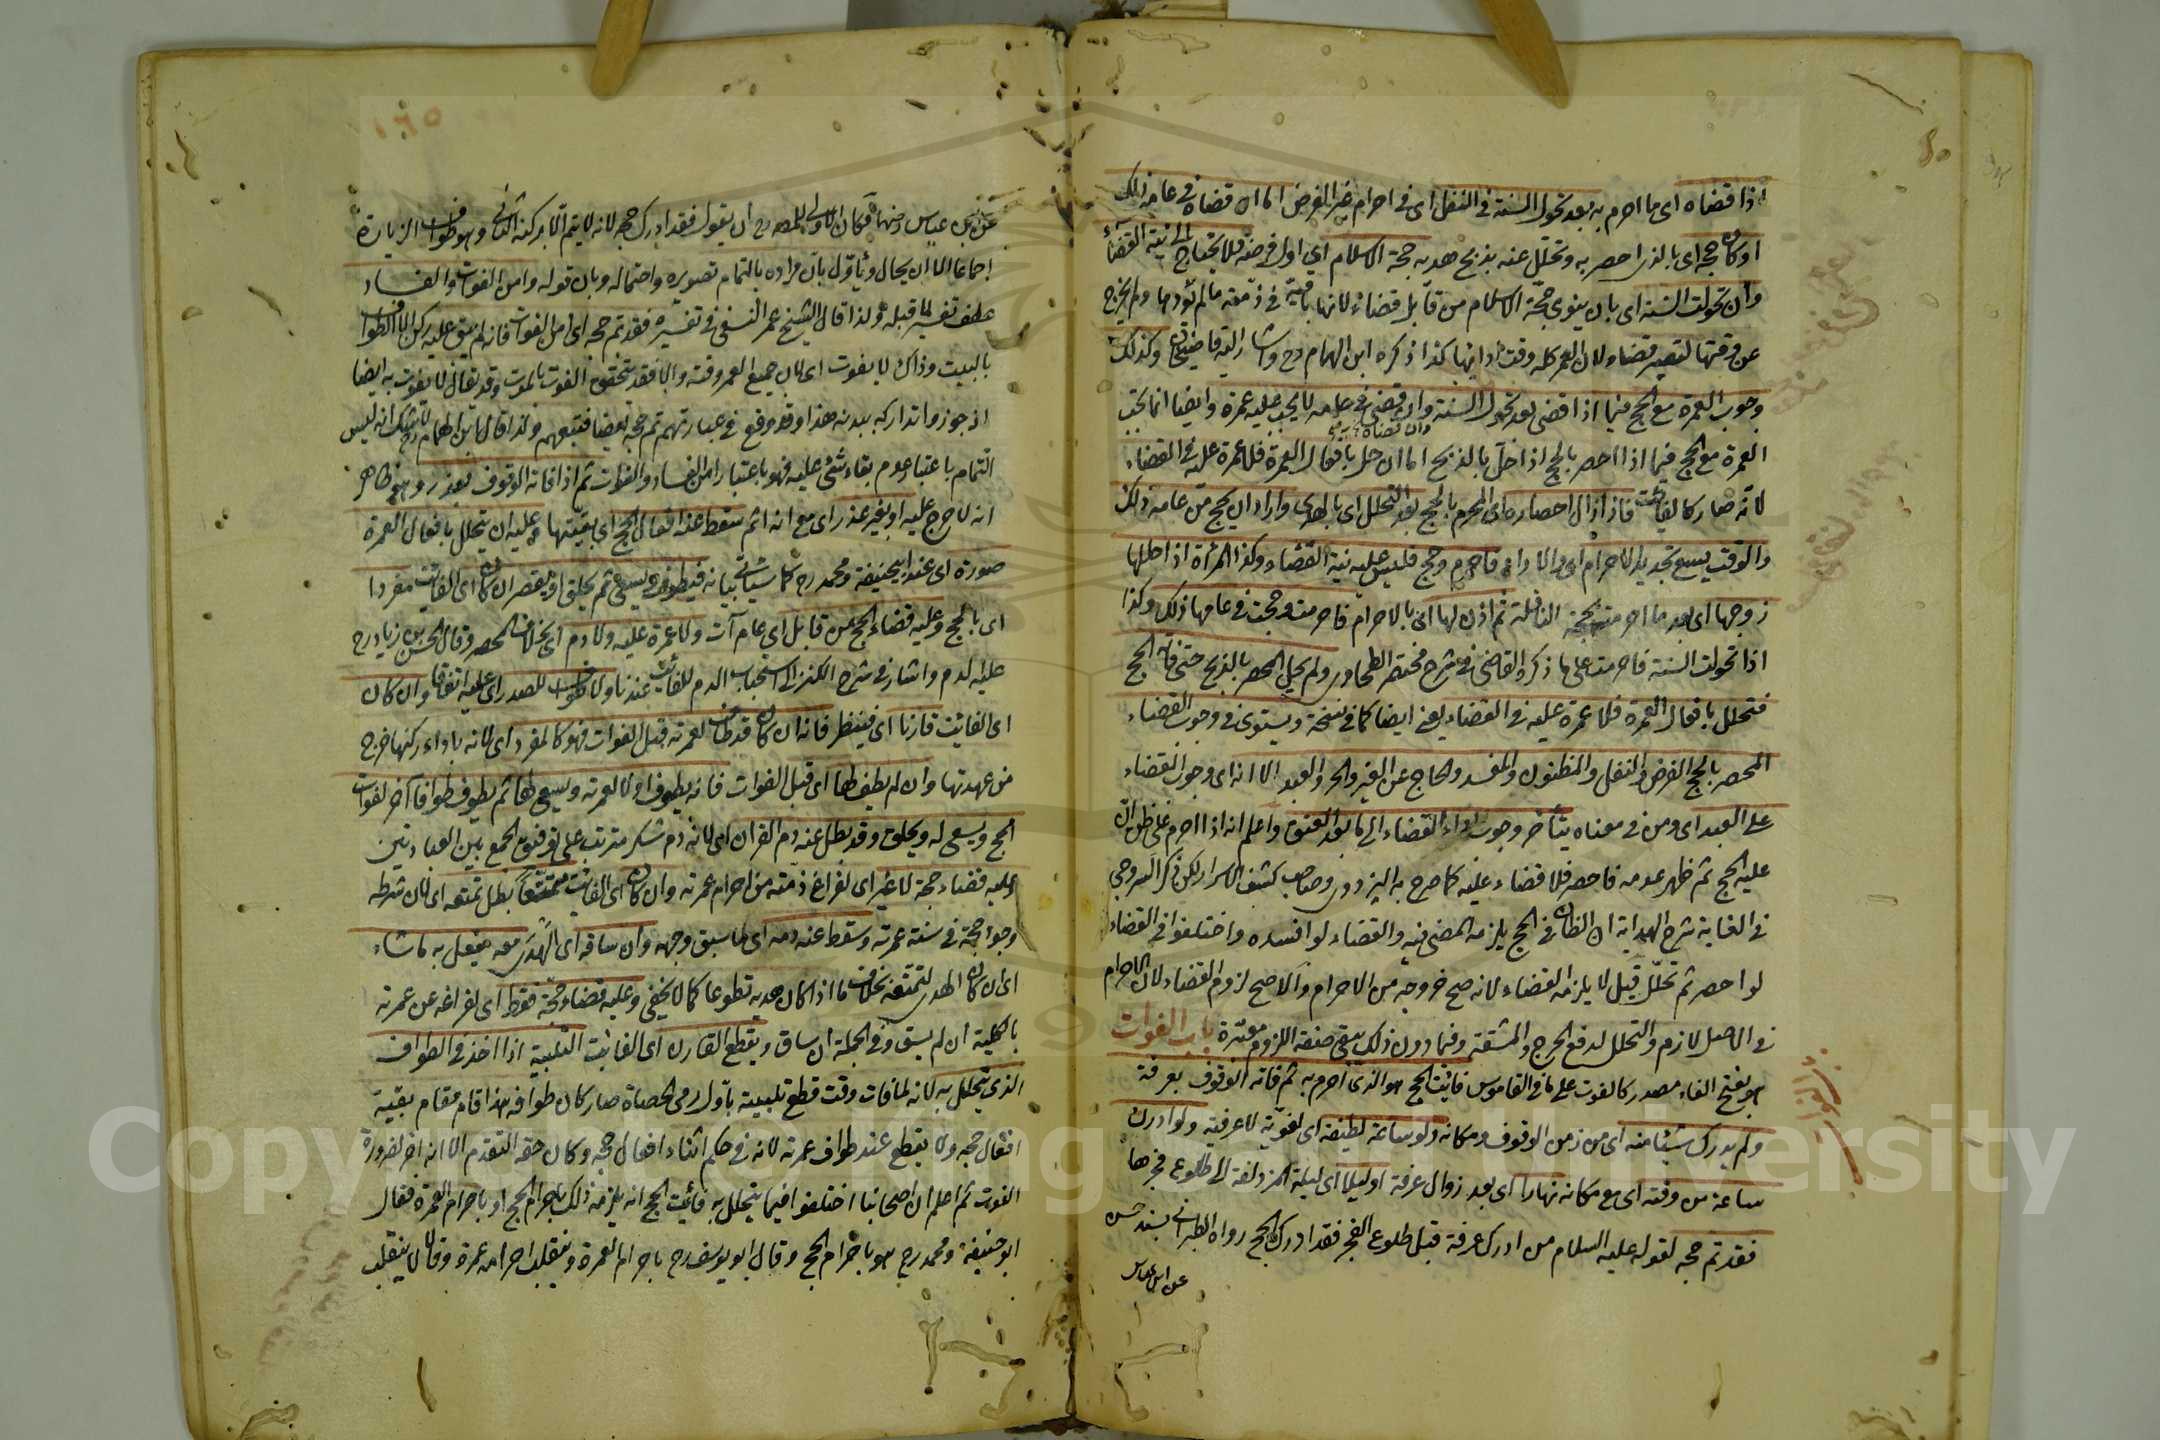 اذا قضاه اى ما احرم به بعد تحول السنة فى النفل اى فى احرام غير الفرض اما ان قضاه فى عامه ذلك
او كان حجه اى الذى احصر به وتحلل عنه بذبح هديه حجة الاسلام اي اول فرضه فلا يحتاج الى نية القضاء
وان تحولت السنة اى بان ينوى حجة الاسلام من قابل قضاء لانها باقية فى ذمته مالم يؤدها ولم يخرج
عن وقتها لتصير قضاء لان العمر كله وقت ادائها كذا ذكره ابن الهمام رح واشار اليه قاضيخان وكذلك
وجوب العمرة مع الحج فيما اذا قضى بعد تحول السنة وان قضى فى عامه لا يجب عليه عمرة وايضا انما تجب
العمرة مع الحج فيما اذا احصر بالحج اذا حل بالذبح اما ان حل بافعال العمرة فلا عمرة عليه فى القضاء
لانه صار كالفائت فاذا زال احصاره اى المحرم بالحج بعد التحلل اى بالهدى واراد ان يحج من عامه ذلك
والوقت يسع تجديد الاحرام اى والاداء فاحرم وحج فليس عليه نية القضاء وكذا المرأة اذا احلها
زوجها اى بعد ما احرمت بحجة النافلة ثم اذن لها اى بالاحرام فاحرمت وحجت فى عامها ذلك وكذا
اذا تحولت السنة فاحرمت على ما ذكره القاضى فى شرح مختصر الطحاوى ولم يحل المحصر بالذبح حتى فاته الحج
فتحلل بافعال العمرة فلا عمرة عليه فى القضاء يعنى ايضا كما فى نسخة ويستوى فى وجوب القضاء
المحصر بالحج الفرض والنفل والمظنون والمفسد والحاج عن الغير والحر والعبد الا انه اى وجوب القضاء
على العبد اى ومن فى معناه يتأخر وجوب اداء القضاء الى ما بعد العتق واعلم انه اذا احرم على ظن ان
عليه الحج ثم ظهر عدمه فاحصر فلا قضاء عليه كما صرح به البزدوى وصاحب كشف الاسرار لكن ذكر السروجى
فى الغاية شرح الهداية ان الظان فى الحج يلزمه المضى فيه والقضاء لو افسده واختلفوا فى القضاء
لو احصر ثم تحلل قيل لا يلزمه القضاء لانه صح خروجه من الاحرام والاصح لزوم القضاء لان الاحرام
فى الاصل لازم والتحلل لدفع الحرج والمشقة وفيما دون ذلك يبقى صفة اللزوم معتبرة باب الفوات
هو بفتح الفاء مصدر كالفوت على ما فى القاموس فائت الحج هو الذى احرم به ثم فاته الوقوف بعرفة
ولم يدرك شيئا منه اى من زمن الوقوف ومكانه ولو ساعة لطيفة اى لغوية لا عرفية ولو ادرك
ساعة من وقته اى مع مكانه نهارا اى بعد زوال عرفة او ليلا اى ليلة المزدلفة الى طلوع فجرها
فقد تم حجه لقوله عليه السلام من ادرك عرفة قبل طلوع الفجر فقد ادرك الحج رواه الطبرانى بسند حسن
عن ابن عباس
باب الفوات
١٦٥
عن ابن عباس رضى الله عنهما فكان الاولى للمص رح ان يقول فقد ادرك حجه لانه لا يتم الا بركنه الثانى وهو طواف الزيارة
اجماعا الا ان يحال ويأول بان مراده بالتمام تصويره واحتماله وبان قوله وامن الفوات والفساد
عطف تفسير لما قبله ولذا قال الشيخ عمر النسفى فى تفسيره فقد تم حجه اى امن الفوات فانه لم يبق عليه ركن الا الطواف
بالبيت وذاك لا يفوت اى لان جميع العمر وقته والا فقد يتحقق الفوت بالموت وقد يقال لا يفوت به ايضا
اذ جوزوا تداركه ببدنه هذا وقد وقع فى عبارتهم تم حجه ايضا فتبعهم ولذا قال ابن الهمام رح لا شك انه ليس
التمام باعتبار عدم بقاء شئ عليه فهو باعتبار امن الفساد والفوات ثم اذا فاته الوقوف بعذر وهو ظاهر
انه لا حرج عليه او بغير عذر اى مع انه اثم سقط عنه افعال الحج اى بقيتها وعليه ان يتحلل بافعال العمرة
صورة اى عند ابيحنيفة ومحمد رح كما سيأتى بيانه فيطوف ويسعى ثم يحلق او يقصر ان كان اى الفائت مفردا
اى بالحج وعليه قضاء الحج من قابل اى عام آت ولا عمرة عليه ولا دم اى بخلاف المحصر وقال الحسن بن زياد رح
عليه الدم واشار فى شرح الكنز الى استحباب الدم للفائت عندنا ولا طواف للصدر اى عليه اتفاقا وان كان
اى الفائت قارنا اى فينظر فانه ان كان قد طاف لعمرته قبل الفوات فهو كالمفرد اى لانه باداء ركنها خرج
من عهدتها وان لم يطف لها اى قبل الفوات فانه يطوف اولا لعمرته ويسعى لها ثم يطوف طوافا آخر لفوات
الحج ويسعى له ويحلق وقد بطل عنه دم القران اى لانه دم شكر مترتب على توفيق الجمع بين العبادتين
وعليه قضاء حجة لا غير اى لفراغ ذمته من احرام عمرته وان كان اى الفائت متمتعا بطل تمتعه اى لان شرطه
وجود حجة فى سنة عمرته وسقط عنه دمه اى لما سبق وجهه وان ساقه اى الهدى معه يفعل به ما شاء
اى ان كان الهدى لتمتعه بخلاف ما اذا كان هديه تطوعا كما لا يخفى وعليه قضاء حجة فقط اى لفراغه عن عمرته
بالكلية ان لم يسق وفى الجملة ان ساق ويقطع القارن اى الفائت التلبية اذا اخذ فى الطواف
الذى يتحلل به لانه لما فات وقت قطع تلبيته باول رمى الحصاة صار كان طوافه هذا قام مقام بقية
افعال حجه ولا يقطع عند طواف عمرته لانه فى حكم اثناء افعال حجه وكان حقه التقدم الا انه اخر لضرورة
الفوت ثم اعلم ان اصحابنا اختلفوا فيما يتحلل به فائت الحج انه يلزمه ذلك باحرام الحج او باحرام العمرة فقال
ابو حنيفة ومحمد رح هو باحرام الحج وقال ابو يوسف رح باحرام العمرة وينقلب احرامه عمرة وقالا لا ينقلب
Copyright © King Saud University